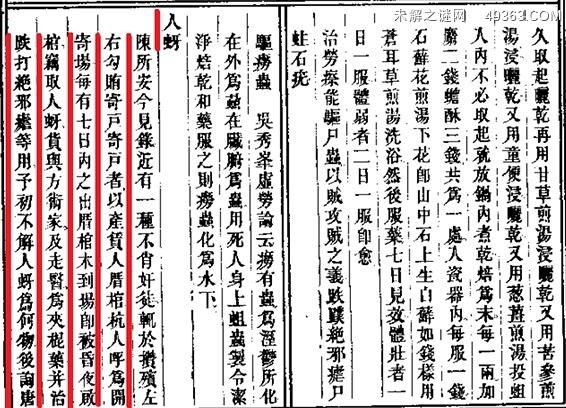 未解之谜网 49363.COM
久取起曬乾再用甘草煎湯浸曬乾又用苦參煎
湯浸曬乾又用童便浸曬乾又用葱薤煎湯投蛆
人內不必取起就放鍋內煮乾焙爲末每一兩加
麝二錢蟾酥三錢共爲一處入瓷器內每服一錢
石蘚花煎湯下花卽山中石上生白蘚如錢樣用
蒼耳草煎湯洗浴然後服藥七日見效體壯者一
日一服體弱者二日一服卽愈
治勞瘵能驅尸蟲以賊攻賊之義跌蹼絕邪瘧尸
蛀石疣
驅癆蟲 吳秀峯虛勞論云癆有蟲爲溼鬱所化
在外爲蝨在臟腑爲蟲用死人身上蛆蟲製令潔
淨焙乾和藥服之則癆蟲化爲水下
人蚜
陳所安今見錄近有一種不肖奸徒輒於攢殯左
右勾賄寄戶寄戶者以產賃人厝棺杭人呼爲開
寄場每有七日內之出厝棺木到場卽被昏夜啟
棺竊取人蚜貨與方術家及走醫爲夾棍藥幷治
跌打絕邪瘧等用予初不解人蚜爲何物後詢唐